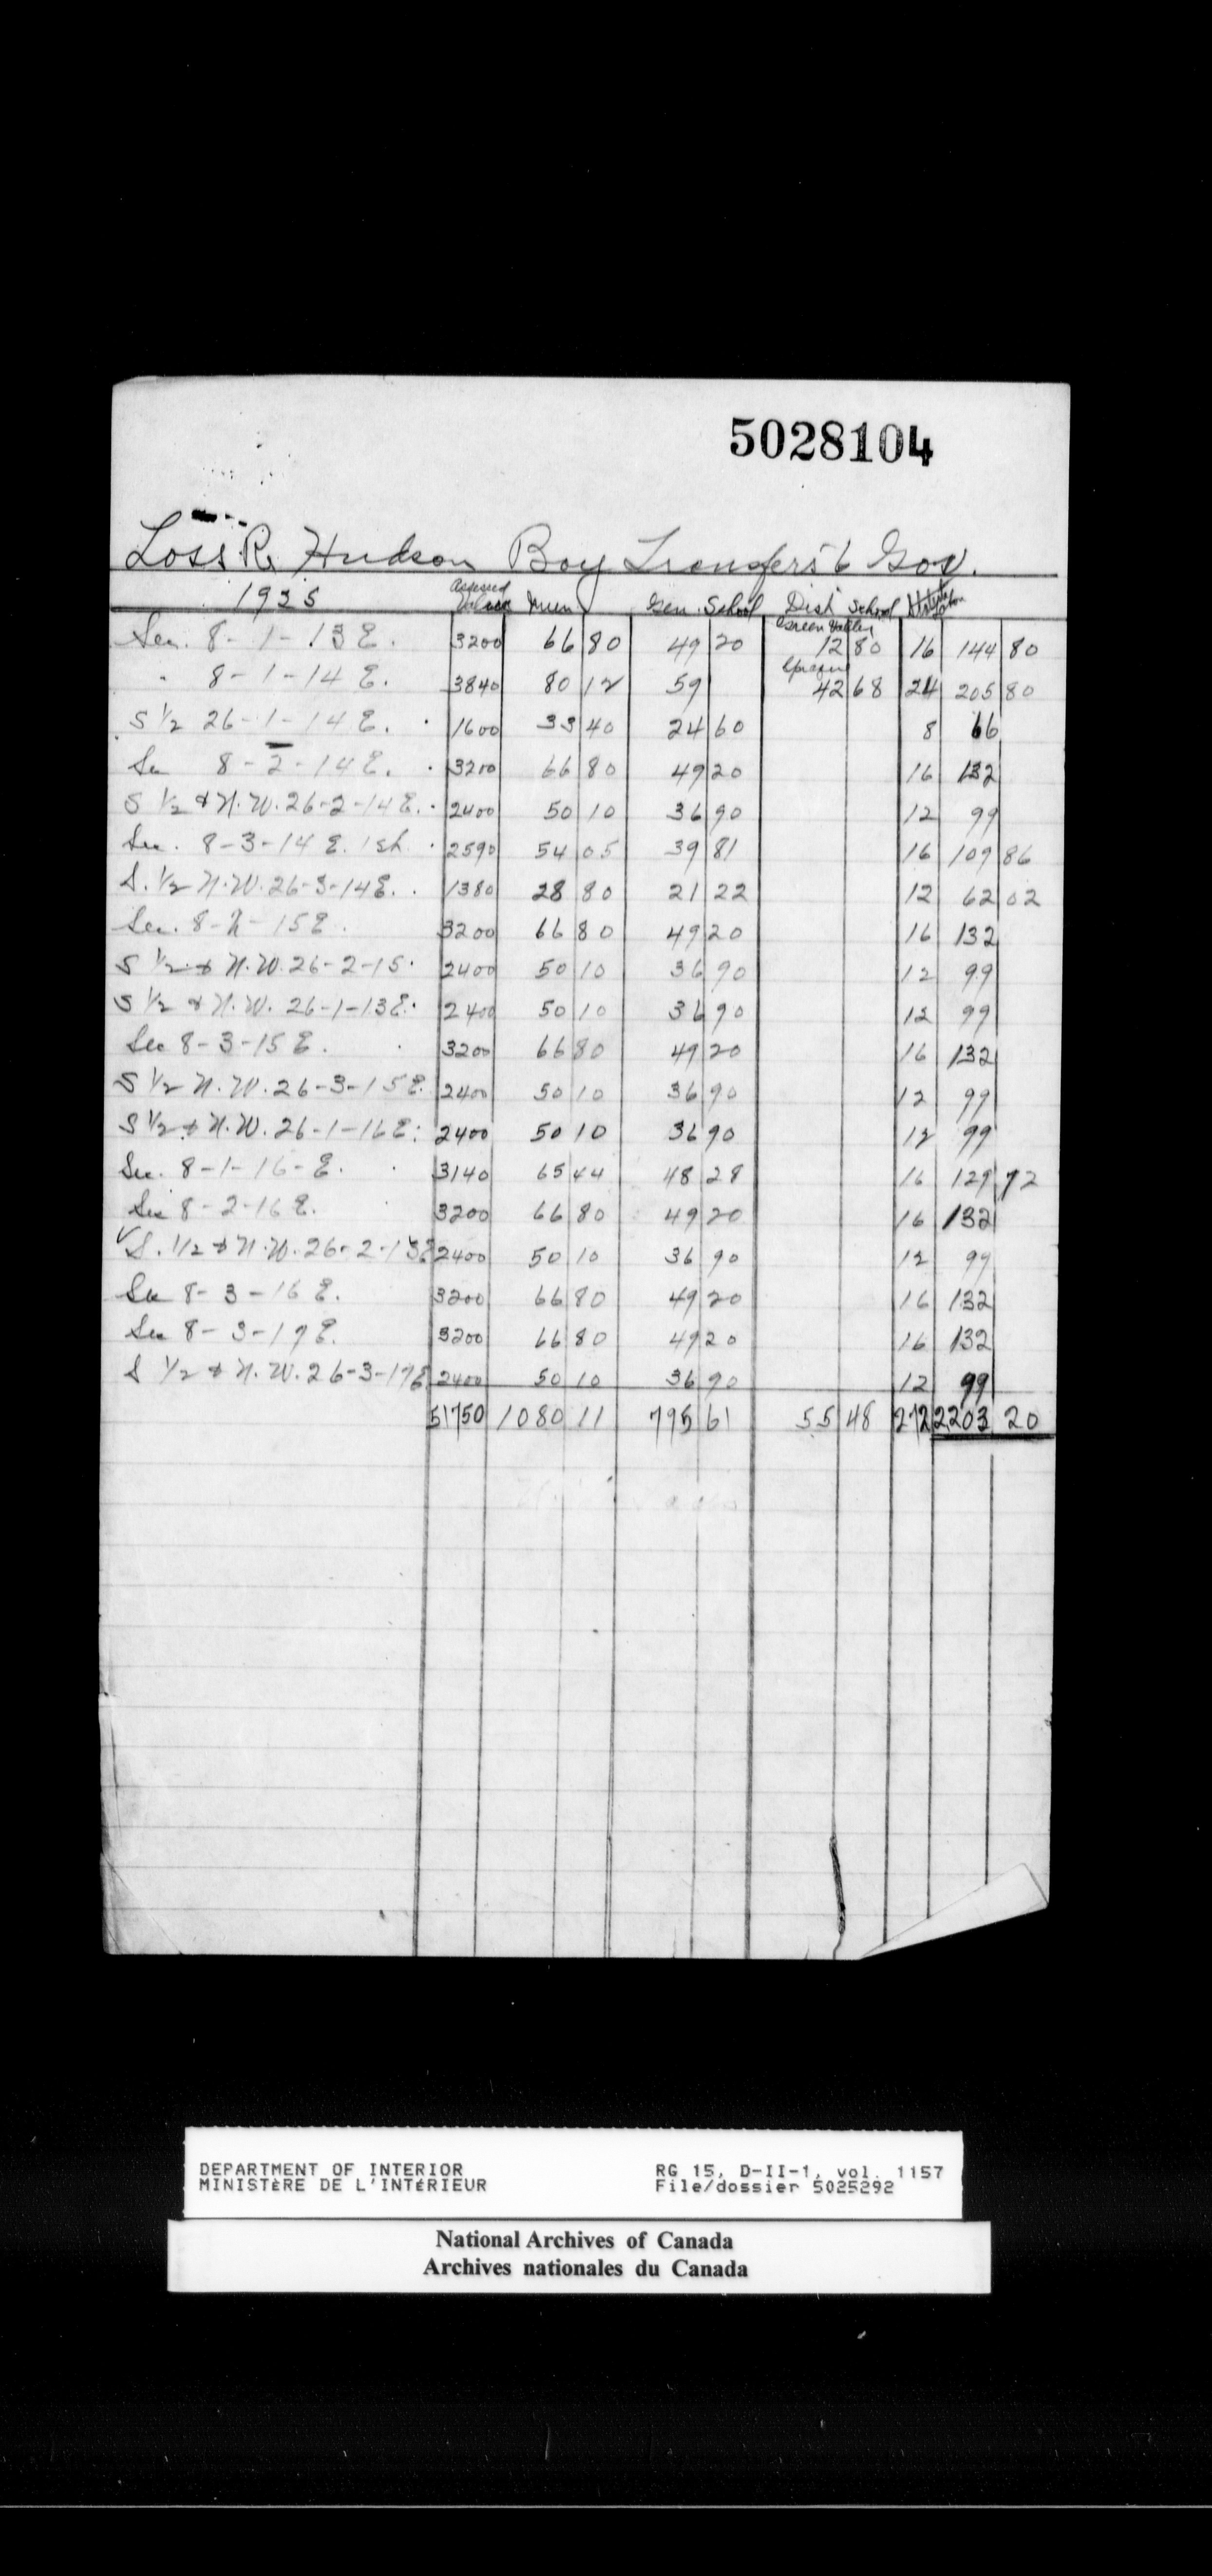 5028104
Loss R. Hudson Bay Transfers to Gov.
1935 Assessed Value Mun Gen. School Dist School
Green Valley
Sec. 8-1-13 E. 3200 66 80 49 20 12 80 16 144 80
Sprague
" 8-1-14 E. 3840 80 12 59 42 68 24 205 80
S 1/2 26-1-14 E. 1600 33 40 24 60 8 66
Sec 8-2-14 E. 3200 66 80 49 20 16 132
S 1/2 & N.W. 26-2-14 E. 2400 50 10 36 90 12 99
Sec. 8-3-14 E. 2590 54 05 39 81 16 109 86
S. 1/2 N.W. 26-3-14 E. 1380 28 80 21 22 12 62 02
Sec. 8-2-15 E. 3200 66 80 49 20 16 132
S 1/2 & N.W. 26-2-15. 2400 50 10 36 90 12 99
S 1/2 & N.W. 26-1-13 E. 2400 50 10 36 90 12 99
Sec 8-3-15 E. 3200 66 80 49 20 16 132
S 1/2 N.W. 26-3-15 E. 2400 50 10 36 90 12 99
S 1/2 & N.W. 26-1-16 E. 2400 50 10 36 90 12 99
Sec. 8-1-16-E. 3140 65 44 48 28 16 129 72
Sec 8-2-16 E. 3200 66 80 49 20 16 132
√S. 1/2 & N.W. 26-2-13 E 2400 50 10 36 90 12 99
Sec 8-3-16 E. 3200 66 80 49 20 16 132
Sec 8-3-17 E. 3200 66 80 49 20 16 132
S 1/2 & N.W. 26-3-17 E 2400 50 10 36 90 12 99
51750 1080 11 795 61 55 48 272 2203 20
DEPARTMENT OF INTERIOR RG 15, D-II-1, vol. 1157
MINISTÈRE DE L'INTÉRIEUR File/dossier 5025292
National Archives of Canada
Archives nationales du Canada